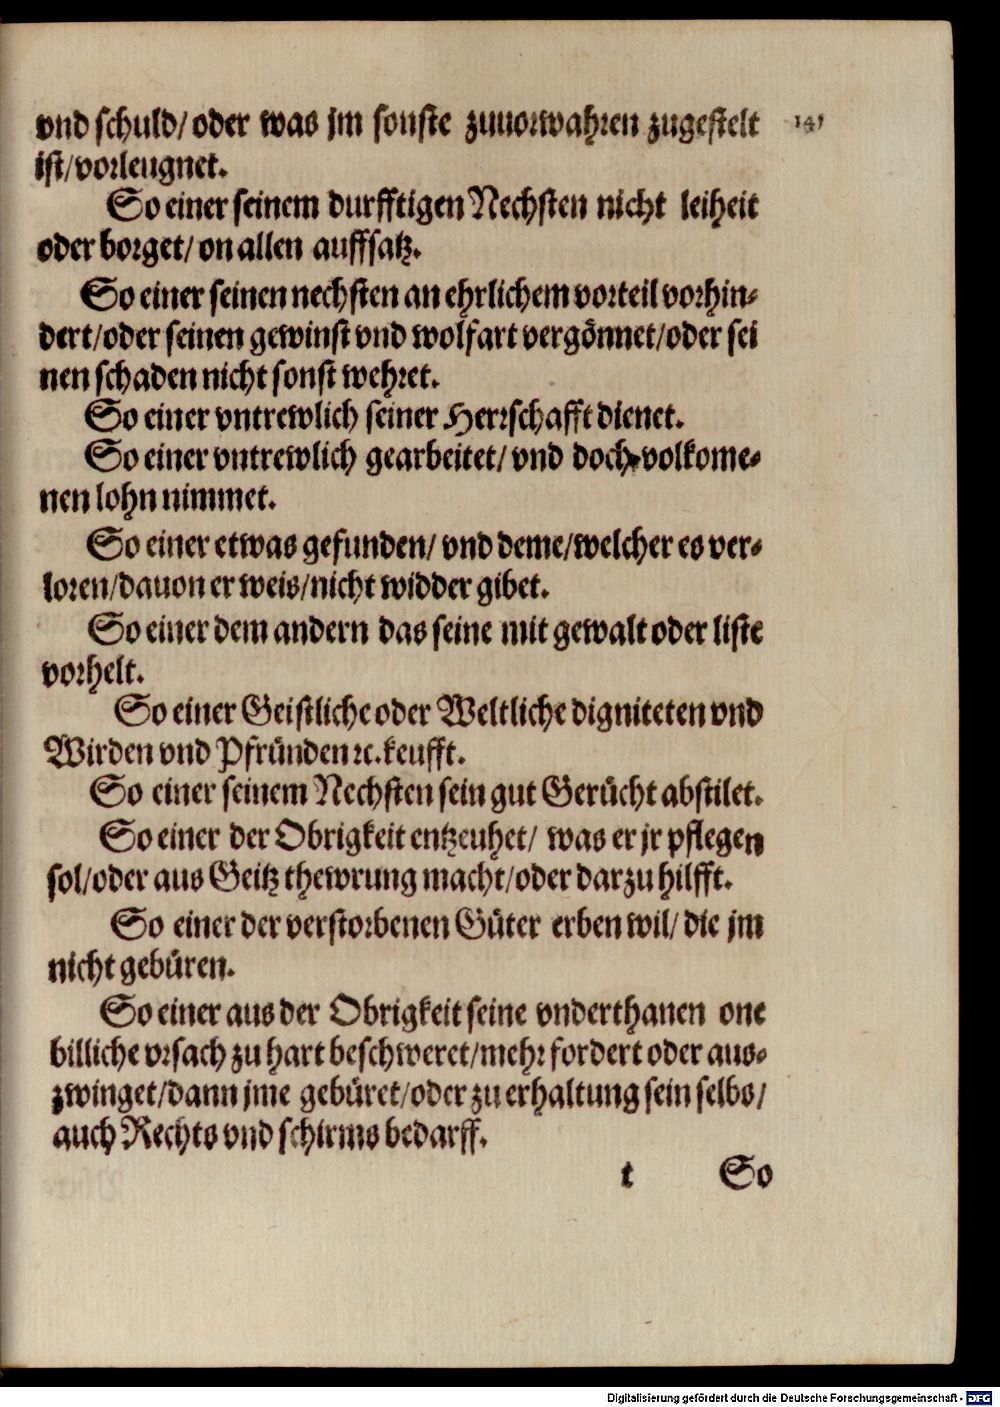 vnd schuld/ oder was jm sonste zuuorwahren zugestelt 141
ist/vorleugnet.
So einer seinem durfftigen Nechsten nicht leiheit
oder borget/ on allen auffsatz.
So einer seinen nechsten an ehrlichem vorteil vorhin⸗
dert/oder seinen gewinst vnd wolfart vergönnet/oder sei
nen schaden nicht sonst wehret.
So einer vntrewlich seiner Herrschafft dienet.
So einer vntrewlich gearbeitet/ vnd doch volkome⸗
nen lohn nimmet.
So einer etwas gefunden/ vnd deme/welcher es ver⸗
loren/dauon er weis/nicht widder gibet.
So einer dem andern das seine mit gewalt oder liste
vorhelt.
So einer Geistliche oder Weltliche digniteten vnd
Wirden vnd Pfründen ꝛc. keufft.
So einer seinem Nechsten sein gut Gerücht abstilet.
So einer der Obrigkeit entzeuhet/ was er jr pflegen
sol/oder aus Geitz thewrung macht/oder darzu hilfft.
So einer der verstorbenen Güter erben wil/ die jm
nicht gebüren.
So einer aus der Obrigkeit seine vnderthanen one
billiche vrsach zu hart beschweret/mehr fordert oder aus⸗
zwinget/dann jme gebüret/oder zu erhaltung sein selbs/
auch Rechts vnd schirms bedarff.
t So
Digitalisierung gefördert durch die Deutsche Forschungsgemeinschaft - DFG